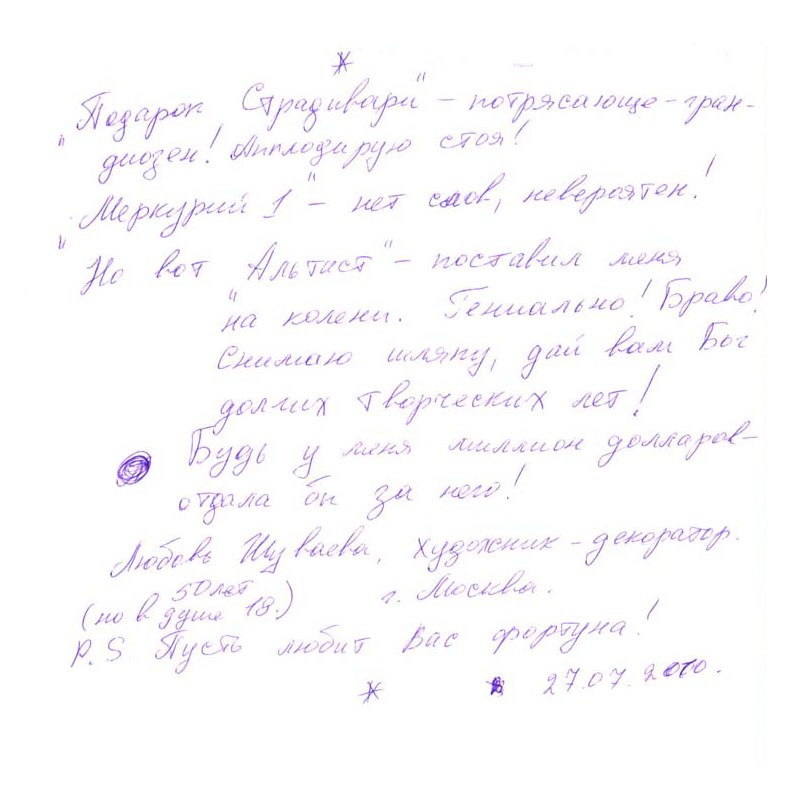 "Подарок Страдивари" – потрясающе – гран-
диозен! Апплодирую стоя!
"Меркурий 1" – нет слов, невероятен!
Но вот "Альтист" – поставил меня
на колени. Гениально! Браво!
Снимаю шляпу, дай вам Бог
долгих творческих лет!
Будь у меня миллион долларов –
отдала бы за него!
Любовь Шуваева, художник – декоратор.
50 лет г. Москва.
(но в душе 18.)
P.S. Пусть любит Вас фортуна!
27.07.2010.